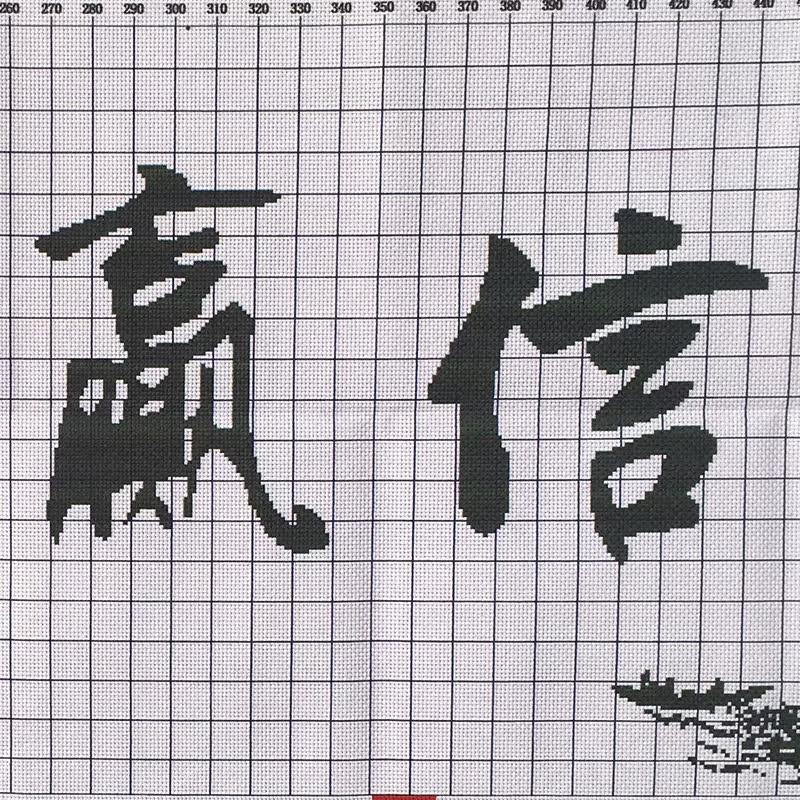 260 270 280 290 300 310 320 330 340 350 360 370 380 390 400 410 420 430 440
赢信